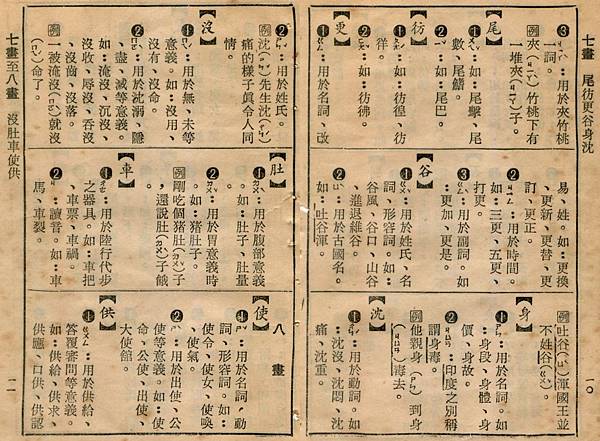 七畫 尾彷更谷身沈
❸ ：用於夾竹桃
一詞。
例 夾( )竹桃下有
一堆夾( )子。
【尾】
❶ ：如：尾擊、尾
數、尾鰭。
❷ ：如：尾巴。
【彷】
❶ ：如：彷徨、彷
徉。
❷ ：如：彷彿。
【更】
❶ ：用於名詞、改
易、姓。如：更換
、更新、更替、更
訂、更正。
❷ ：用於時間。
如：三更、五更、
打更。
❸ ：用於副詞。如
：更加、更是。
【谷】
❶ ：用於姓氏、名
詞、形容詞。如：
谷風、谷口、山谷
、進退維谷。
❷ ：用於古國名。
如：吐谷渾。
例 吐谷( )渾國王並
不姓谷( )。
【身】
❶ ：用於名詞。如
：身段、身體、身
價、身故。
❷ ：印度之別稱
謂身毒。
例 他親身( )到身
( )毒去。
【沈】
❶ ：用於動詞。如
：沈沒、沈悶、沈
痛、沈重。
一〇
❷ ：用於姓氏。
例 沈( )先生沈( )
痛的樣子眞令人同
情。
【沒】
❶ ：用於無、未等
意義。如：沒用、
沒有、沒命。
❷ ：用於沈溺、隱
、盡、滅等意義。
如：淹沒、沉沒、
沒收、辱沒、吞沒
、沒齒、沒落。
例 一被淹沒( )就沒
( )命了。
【肚】
❶ ：用於腹部意義
。如：肚子、肚量
❷ ：用於胃意義時
。如：猪肚子。
例 剛吃個猪肚( )子
，還說肚( )子餓
。
【車】
❶ ：用於陸行代步
之器具。如：車把
、車票、車禍。
❷ ：讀音。如：車
馬、車裂。
八 畫
【使】
❶ ：用於名詞，動
詞、形容詞。如：
使令、使女、使喚
、使氣。
❷ ：用於出使、公
使等意義。如：使
命、公使、出使、
大使館。
【供】
❶ ：用於供給、
答覆審問等意義。
如：供給、供求、
供應、口供、供認
七畫至八畫 沒肚車使供
一一